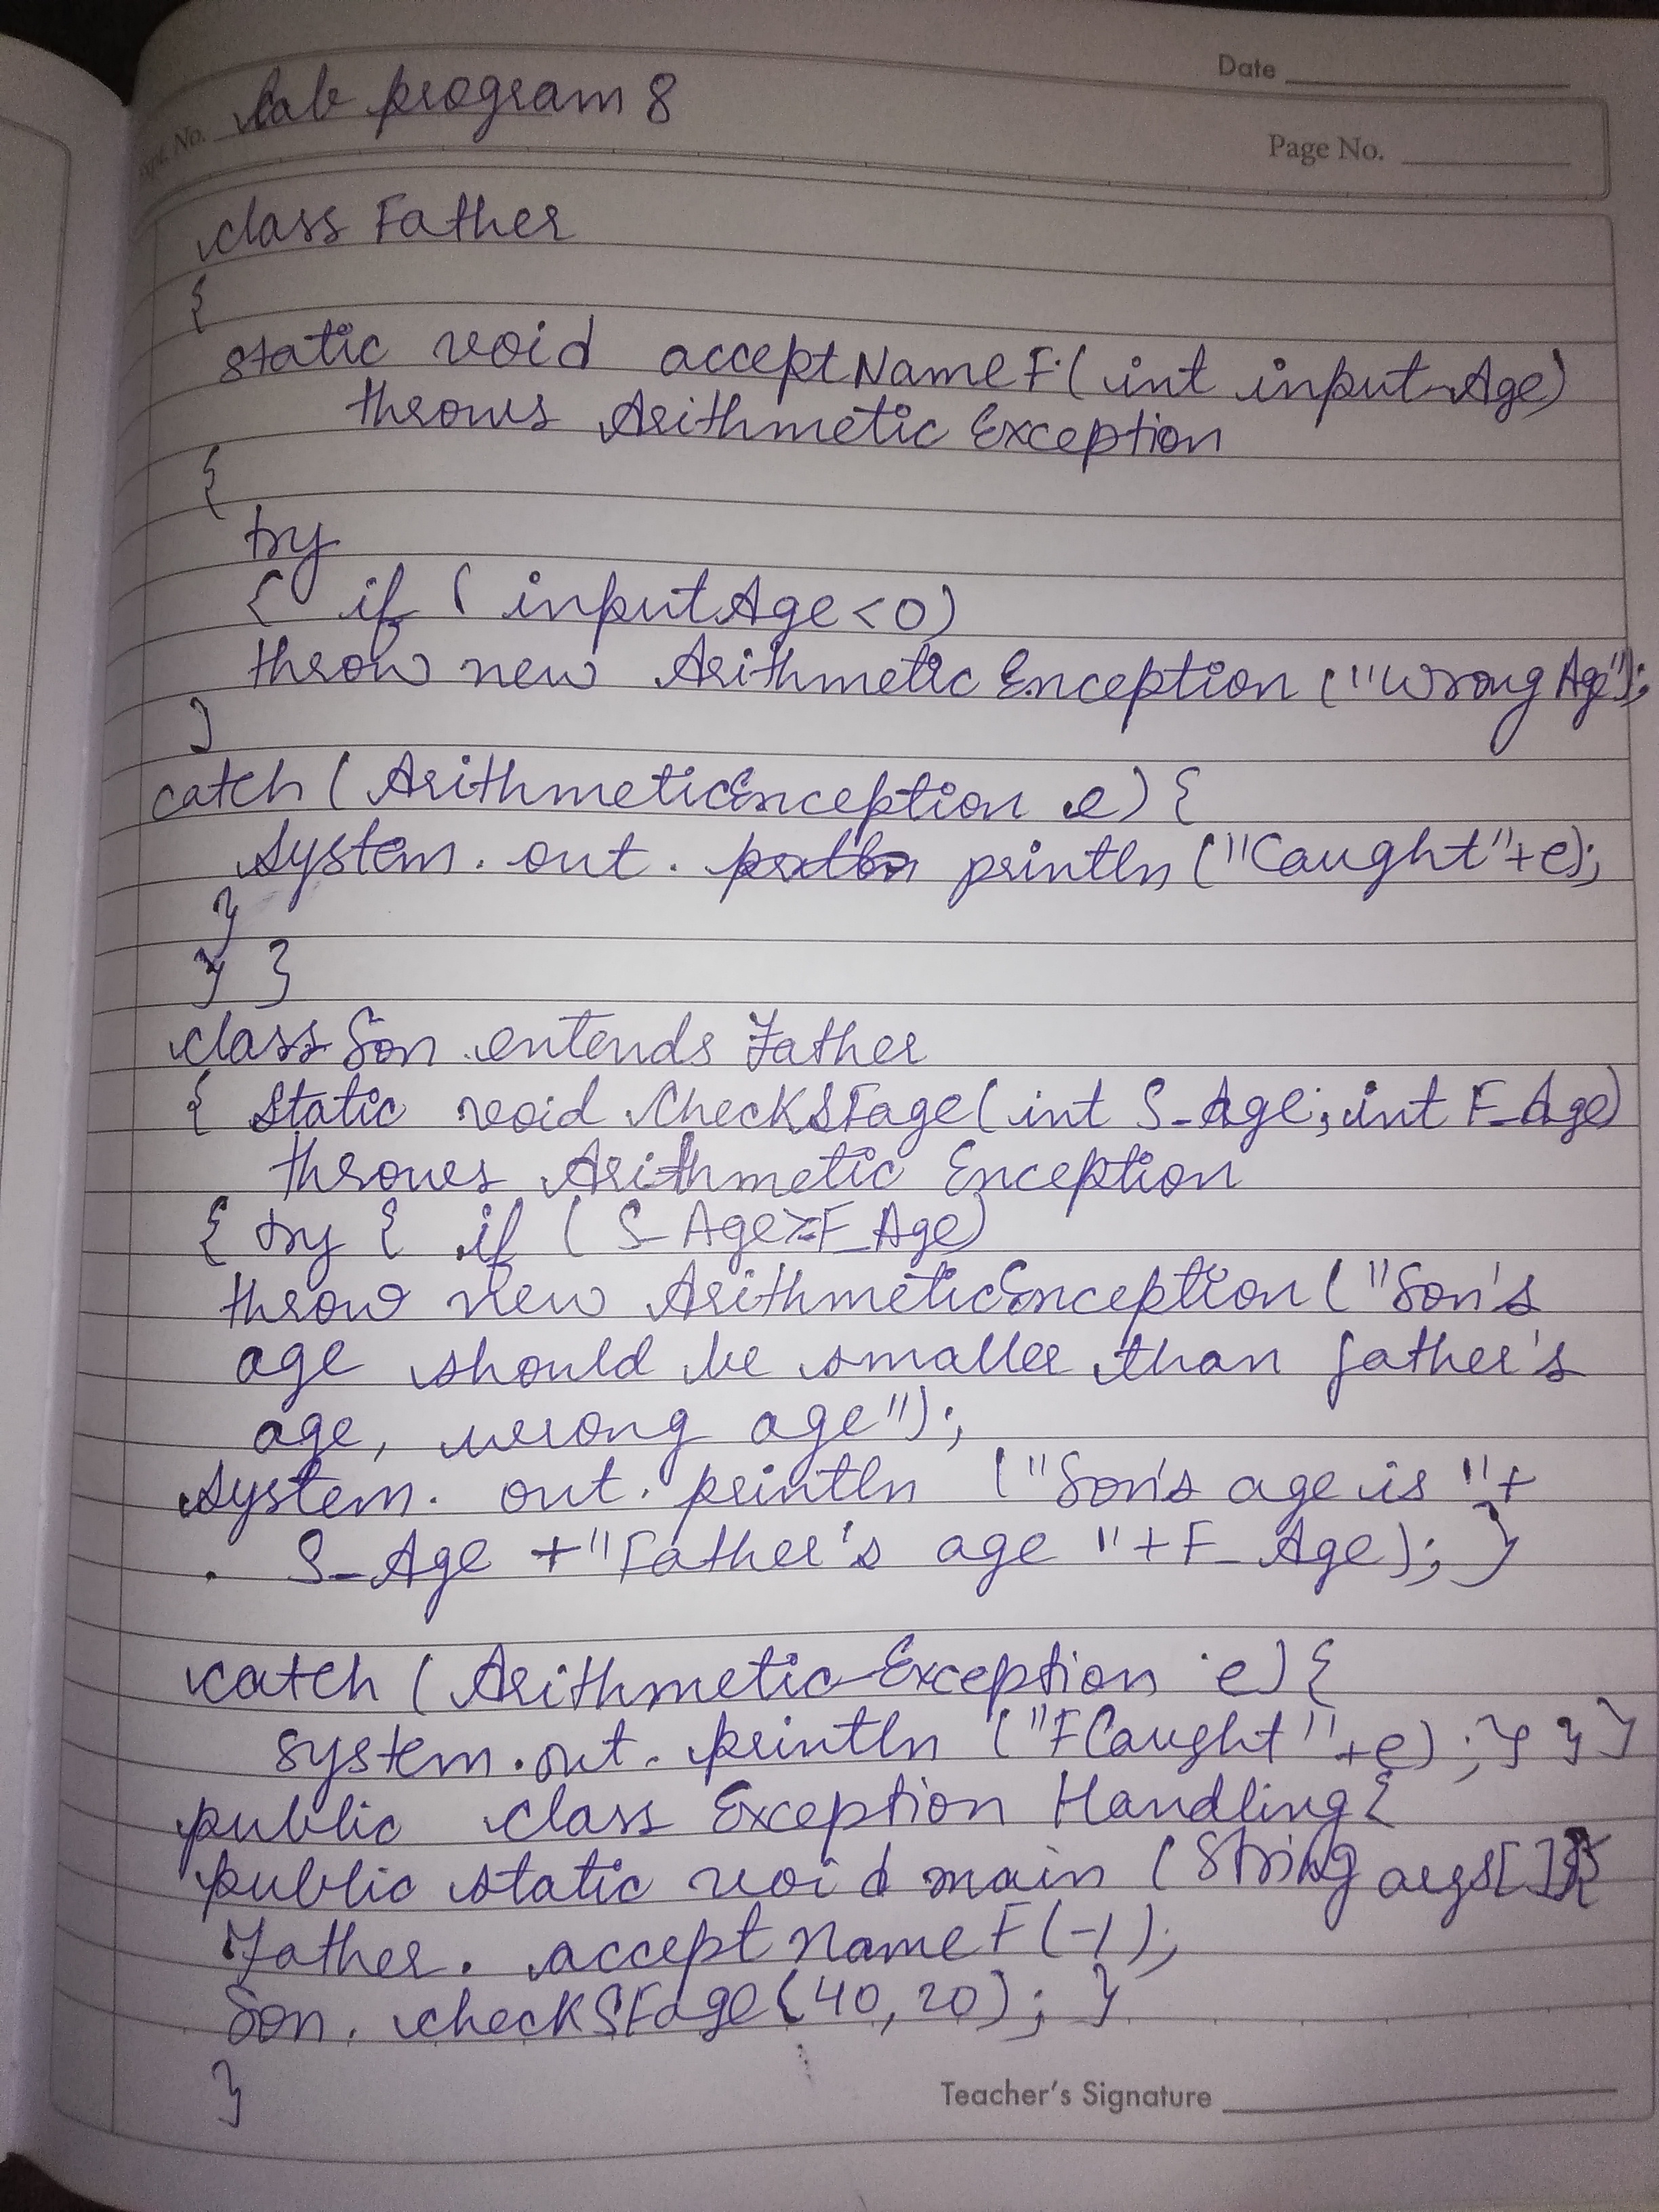 Date
Expt. No. Lab program 8
Page No.
class Father
{
static void acceptNameF(int input_Age)
throws Arithmetic Exception
{
try
{ if ( inputAge<0)
throw new Arithmetic Exception ("Wrong Age");
}
catch (ArithmeticException e) {
System.out. println ("Caught"+e);
}
} }
class Son extends Father
{ static void checkSFage(int S_Age; int F_Age)
throws Arithmetic Exception
{ try { if ( S_Age>=F_Age)
throw new ArithmeticException ("Son's
age should be smaller than father's
age, wrong age");
System. out. println ("Son's age is "+
S_Age +"Father's age "+F_Age); }
catch (Arithmetic-Exception e) {
System.out. println ("FCaught"+e) ;} } }
public class Exception Handling{
public static void main (String args[]){
Father. acceptNameF(-1);
Son. checkSFage(40,20); }
}
Teacher's Signature